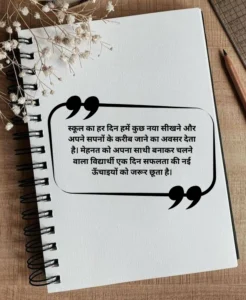 स्कूल का हर दिन हमें कुछ नया सीखने और
अपने सपनों के करीब जाने का अवसर देता
है। मेहनत को अपना साथी बनाकर चलने
वाला विद्यार्थी एक दिन सफलता की नई
ऊँचाइयों को जरूर छूता है।